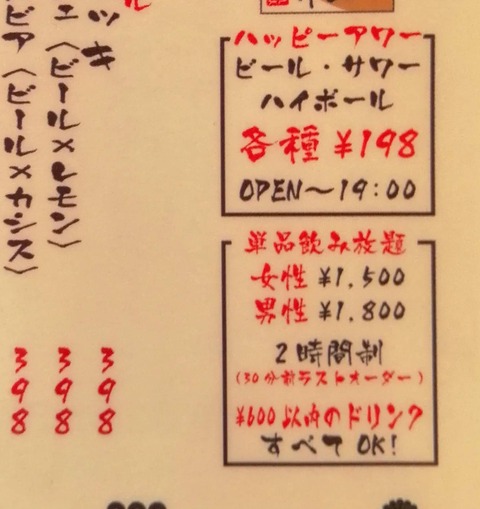 ハッピーアワー
ビール・サワー
ハイボール
各種 ¥198
OPEN～19:00
単品飲み放題
女性 ¥1,500
男性 ¥1,800
2時間制
(30分前ラストオーダー)
¥600以内のドリンク
すべてOK!
ツキ
398
ェ〈ビール×レモン〉
398
ビア〈ビール×カシス〉
398